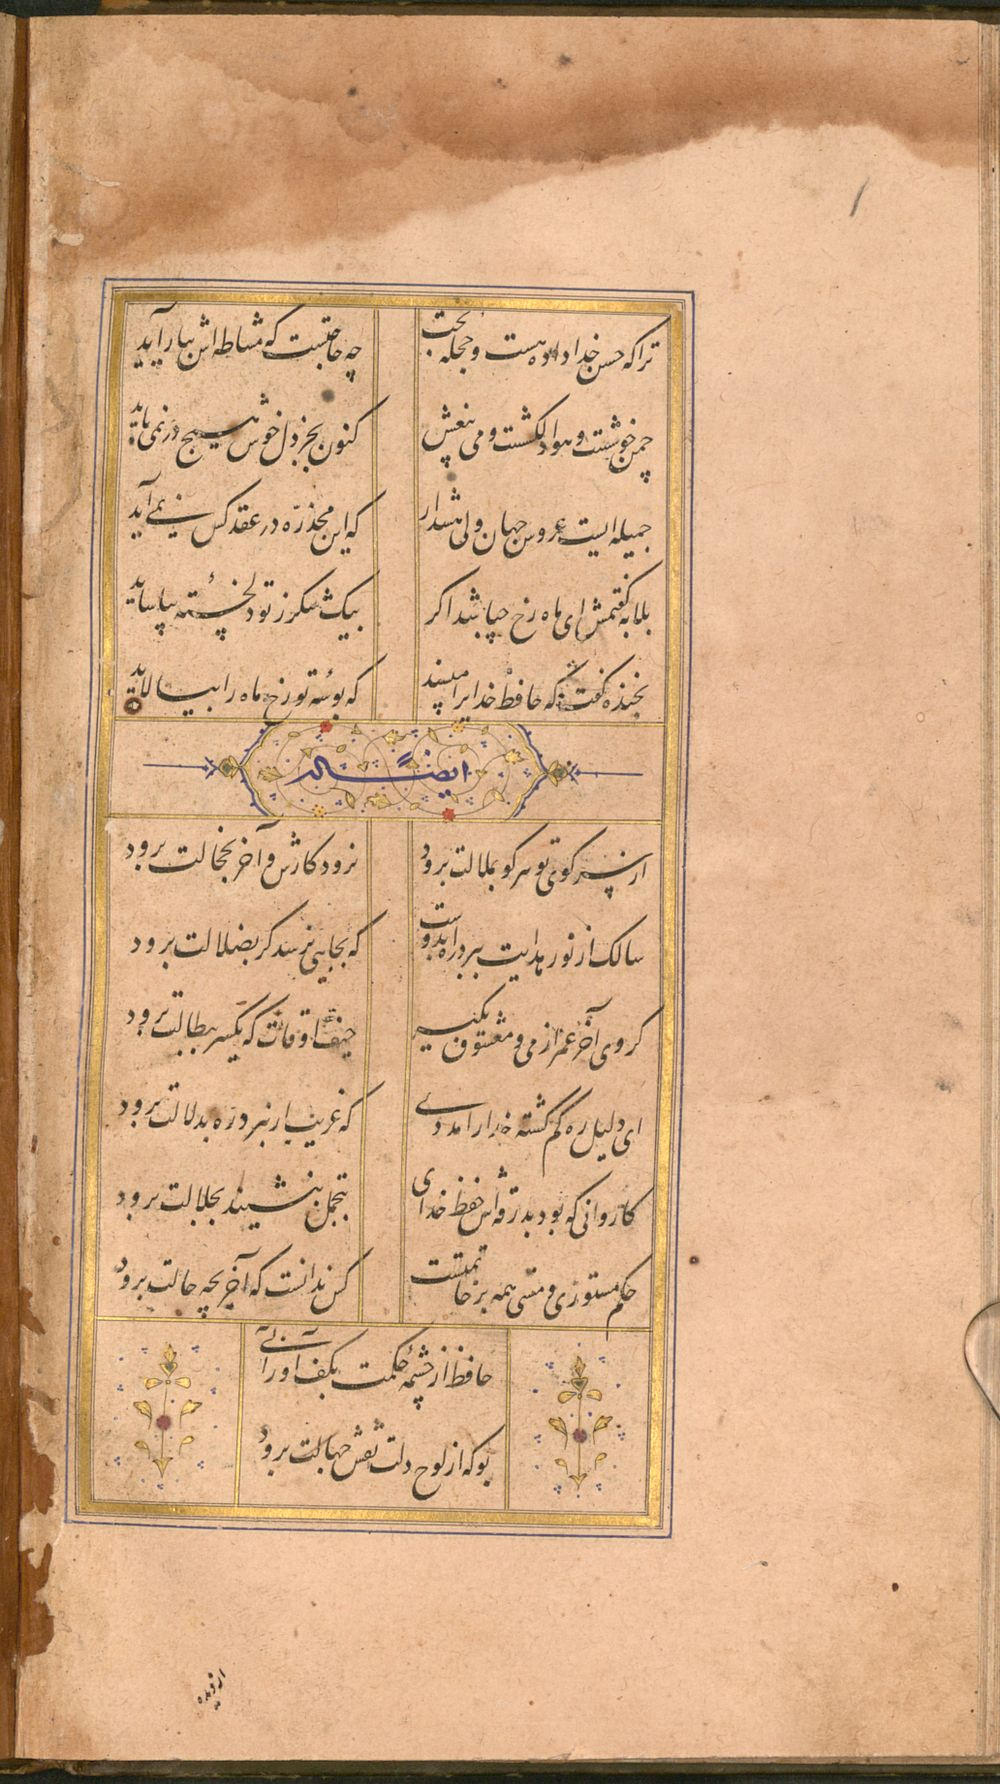 تراکه حسن خداداده هست و حجله بخت چه حاجتست که مشاطه اش بیاراید
چمن خوشست و هوا دلکشست و می بیغش کنون بجز دل خوش هیچ در نمی باید
جمیله ایست عروس جهان ولی هشدار که این مخدره در عقد کس نمی آید
بلابه گفتمش ای ماه رخ چه باشد اگر بیک شکر ز تو دلخسته بیاساید
بخنده گفت که حافظ خدایرا مپسند که بوسه تو رخ ماه را بیالاید
ایضا له
از سر کوی تو هر کو بملالت برود نرود کارش و آخر بخجالت برود
سالک از نور هدایت ببرد راه بدوست که بجایی نرسد گر بضلالت برود
گروی آخر عمر از می و معشوق بگیر حیف اوقات که یکسر ببطالت برود
ای دلیل ره گم گشته خدارا مددی که غریب ار نبرد ره بدلالت برود
کاروانی که بود بدرقه اش حفظ خدای بتجمل بنشیند بجلالت برود
حکم مستوری و مستی همه بر خاتمتست کس ندانست که آخر بچه حالت برود
حافظ از چشمه حکمت بکف آور آبی
بو که از لوح دلت نقش جهالت برود
از دیده